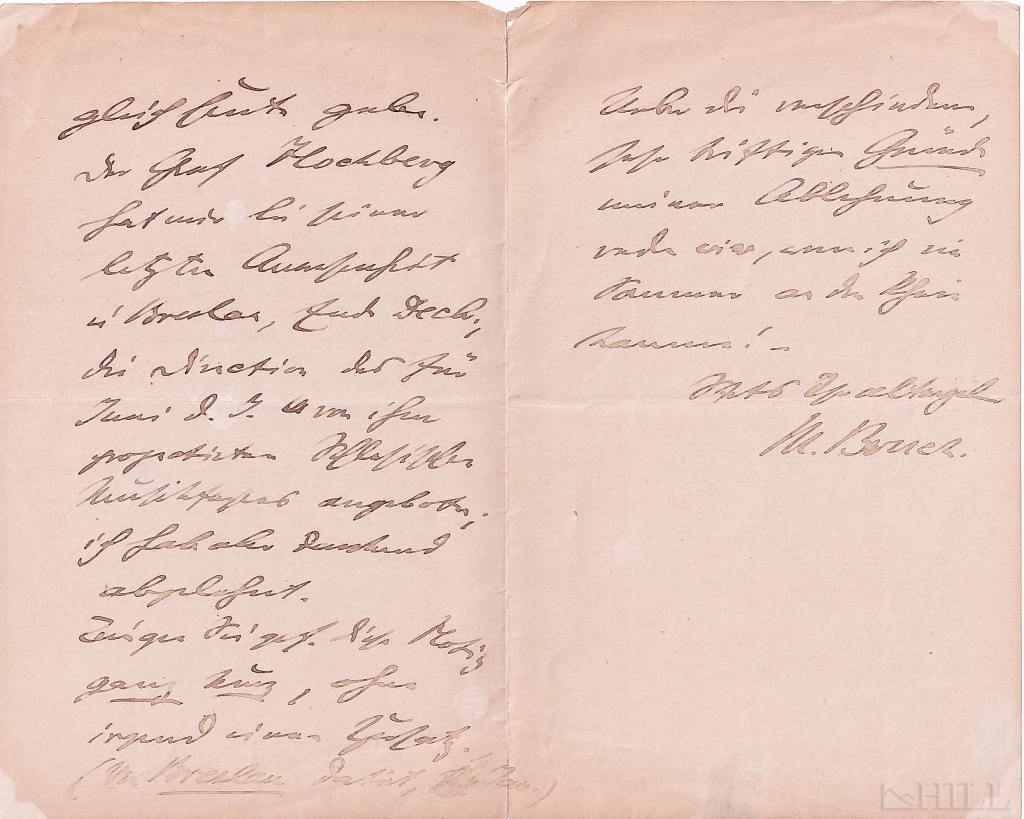 gleich heute geben.
Der Graf Hochberg
hat mir bei seiner
letzten Anwesenheit
in Breslau, Ende Decbr.,
die Direction des für
Juni d. J. von ihm
projectirten Schlesischen
Musikfestes angeboten;
ich habe aber dankend
abgelehnt.
Bringen Sie gef. diese Notiz
ganz kurz, ohne
irgend einen Zusatz.
(Von Breslau datirt, Jan.)
Ueber die verschiedenen,
sehr triftigen Gründe
meiner Ablehnung
reden wir, wenn ich im
Sommer an den Rhein
komme! –
Stets Ihr alter
M. Bruch.
HILL